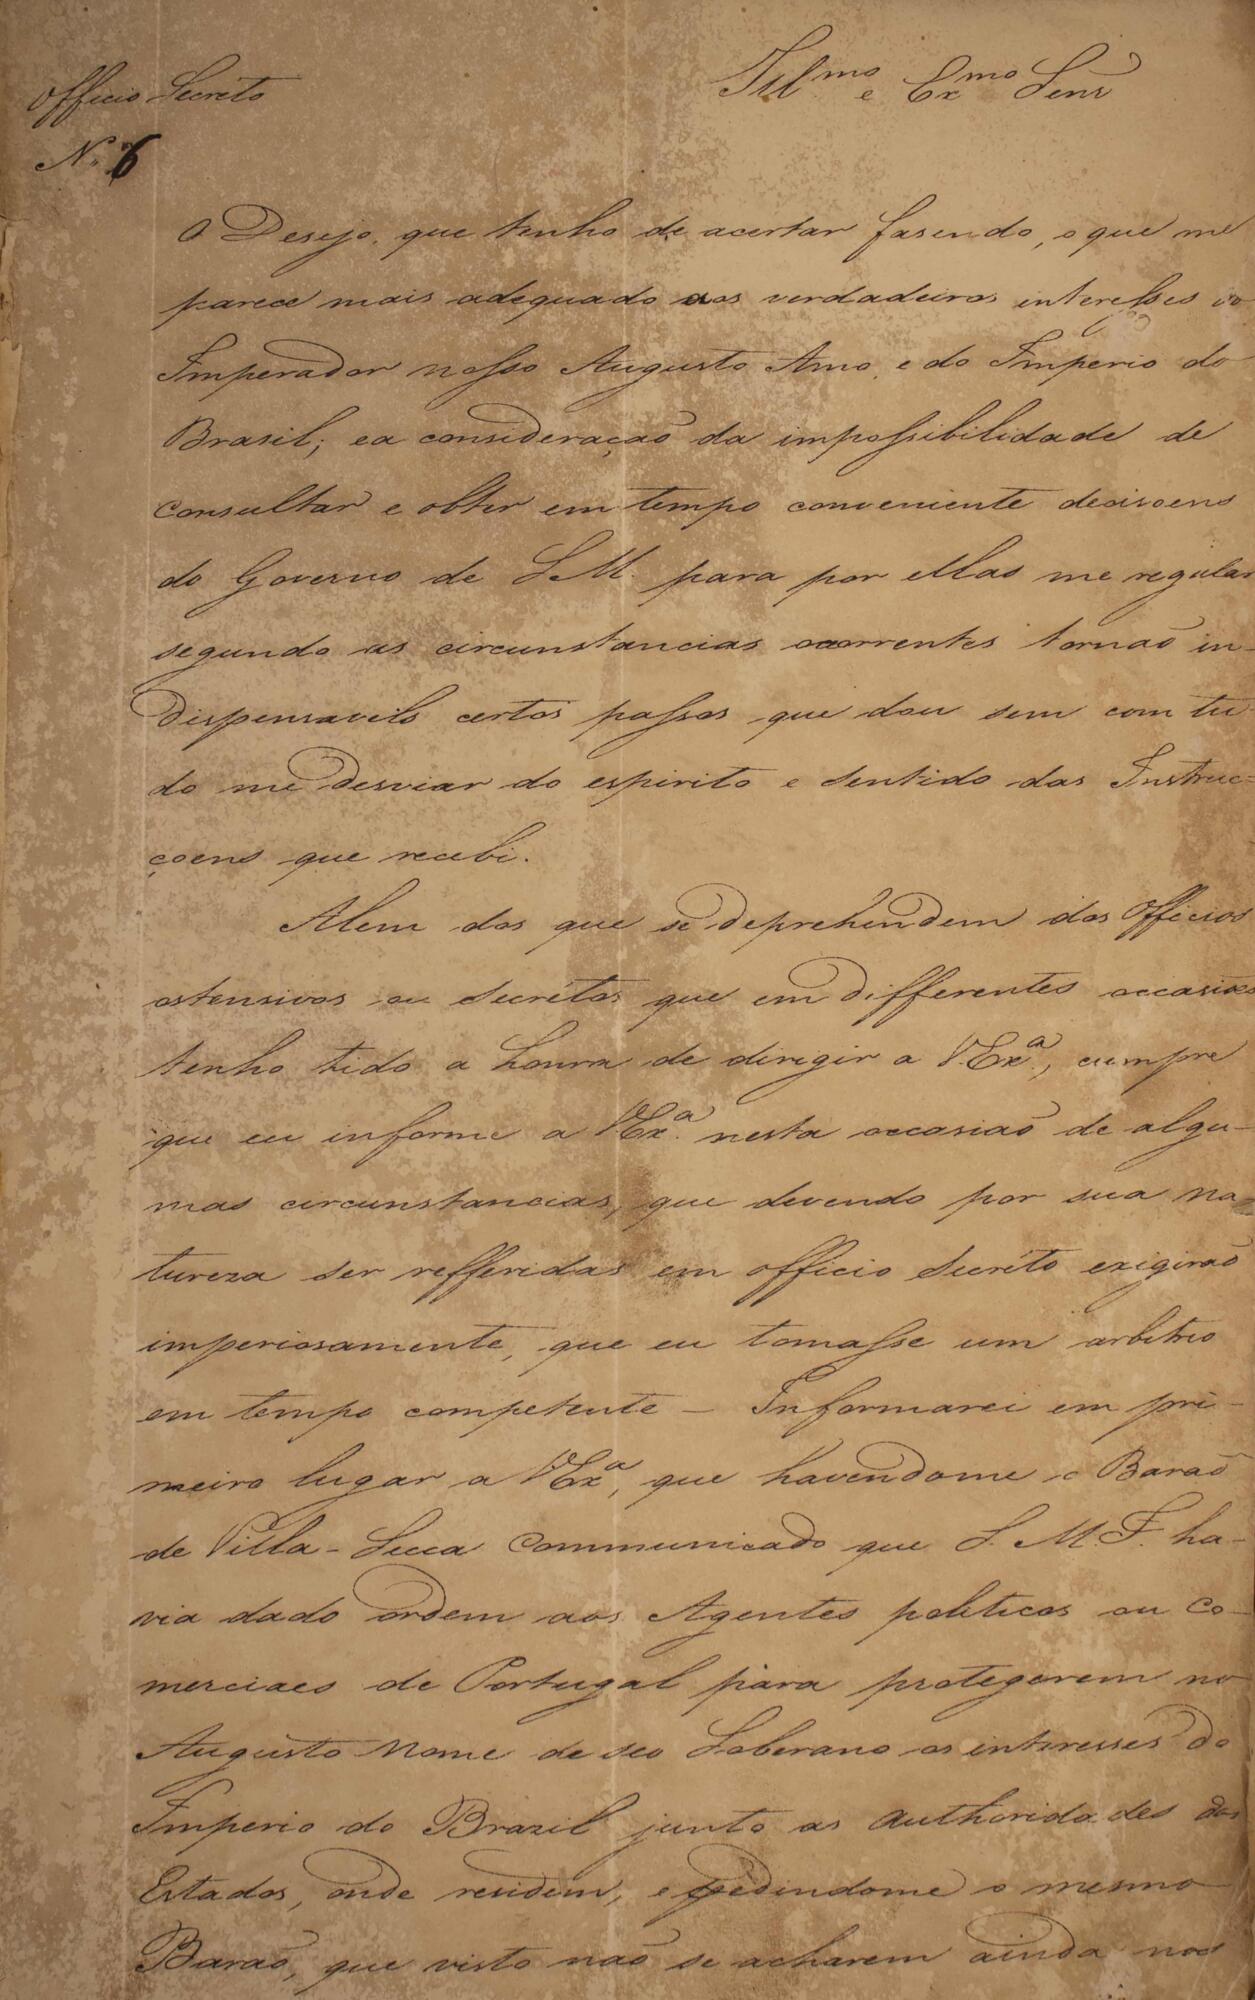 Officio Secreto
Illmo e Exmo Senr
N. 6
O Desejo, que tenho de acertar fasendo, o que me
parece mais adequado aos verdadeiros interesses do
Imperador nosso Augusto Amo, e do Imperio do
Brasil; e a consideração da impossibilidade de
consultar e obter em tempo conveniente decisoens
do Governo de S. M. para por ellas me regular
segundo as circunstancias ocorrentes tornaõ in-
dispensaveis certos passos que dou sem com tu-
do me desviar do espirito e sentido das Instruc-
çoens que recebi.
Alem dos que se deprehendem dos Officios
ostensivos ou secrétos que em differentes occasioes
tenho tido a honra de dirigir a V. Exa., cumpre
que eu informe a V. Exa. nesta occasiaõ de algu-
mas circunstancias, que devendo por sua na-
tureza ser refferidas em officio secréto exigiraõ
imperiosamente, que eu tomasse um arbitrio
em tempo competente - Informarei em pri-
meiro lugar a V. Exa, que havendome o Baraõ
de Villa-Secca Communicado que S. M. F. ha-
via dado ordem aos Agentes politicos ou Co-
merciaes de Portugal para protegerem no
Augusto Nome de seo Soberano os interesses do
Imperio do Brazil junto as authoridades dos
Estados, onde residem, e pedindome o mesmo
Baraõ, que visto naõ se acharem ainda nos